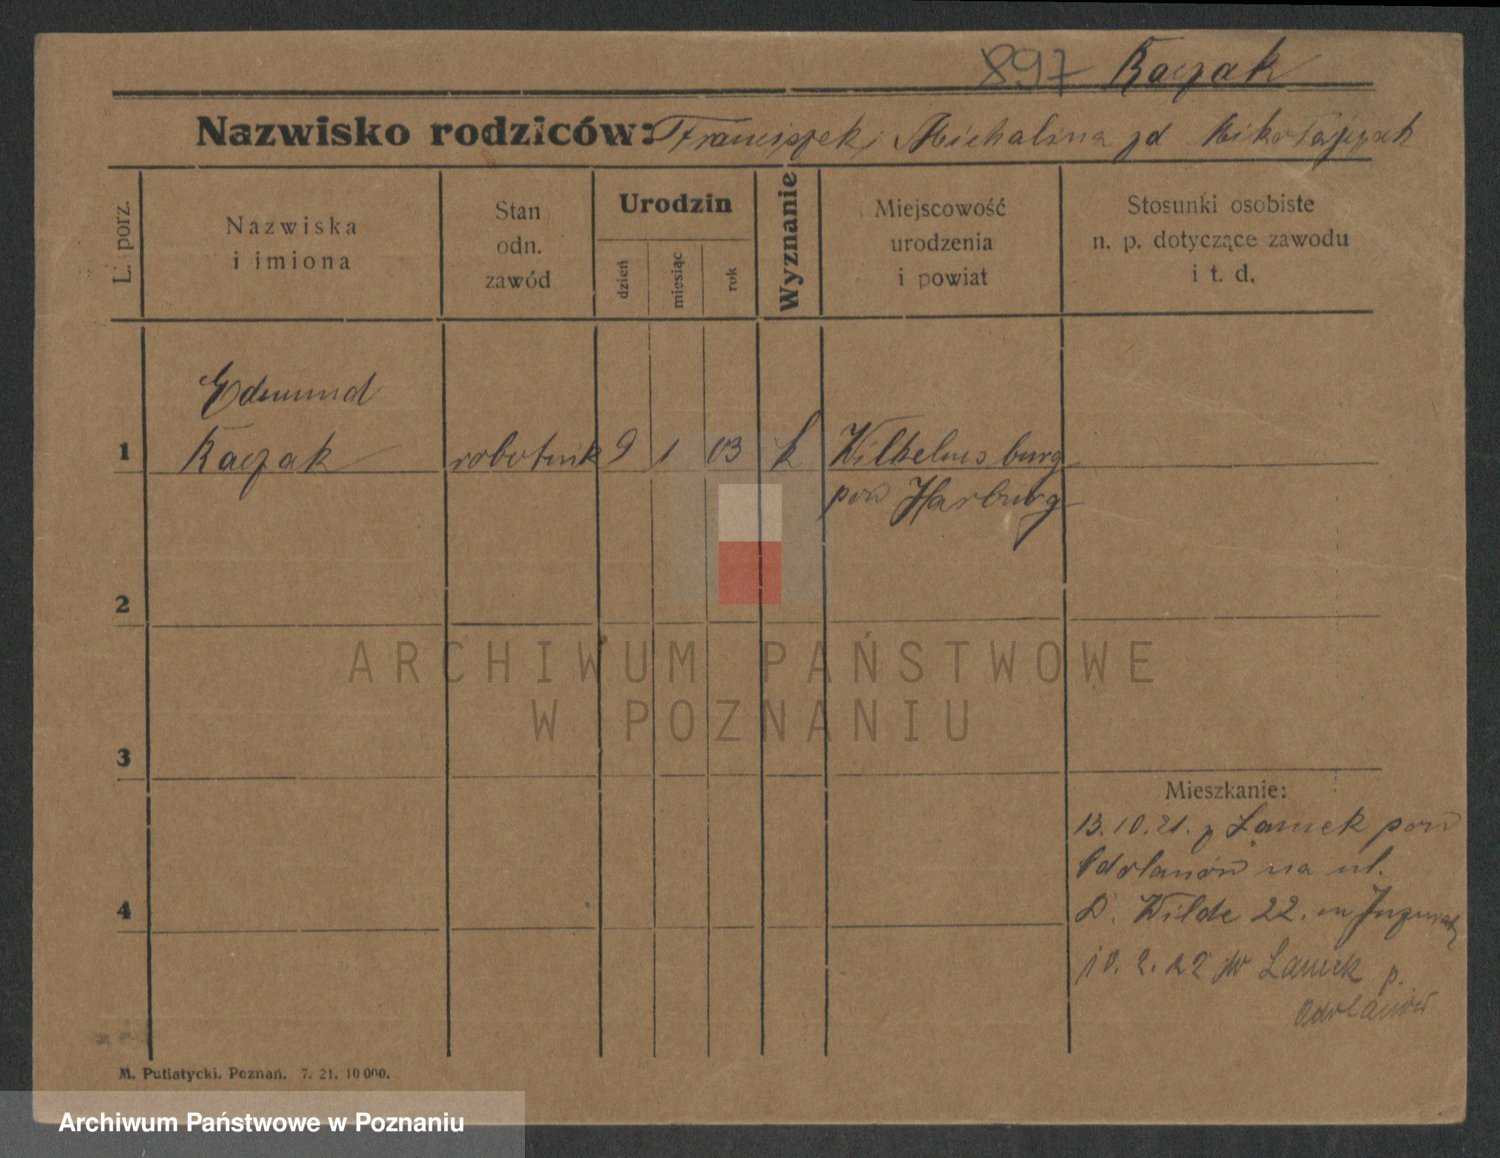 897 Kaczak
Nazwisko rodziców: Franciszek i Michalina zd Mikołajczak
L. porz.
Nazwiska
i imiona
Stan
odn.
zawód
Urodzin
dzień
miesiąc
rok
Wyznanie
Miejscowość
urodzenia
i powiat
Stosunki osobiste
n. p. dotyczące zawodu
i t. d.
Edmund
1 Kaczak robotnik 9 1 03 k Wilhelmsburg
pow Harburg
2
3
Mieszkanie:
13.10.21. z Lamek pow
Odolanów na ul.
4 D. Wilde 22. m
10.2.22 w Lamek p.
Odolanów
ARCHIWUM PAŃSTWOWE
W POZNANIU
M. Putiatycki. Poznań. 7. 21. 10 000.
Archiwum Państwowe w Poznaniu